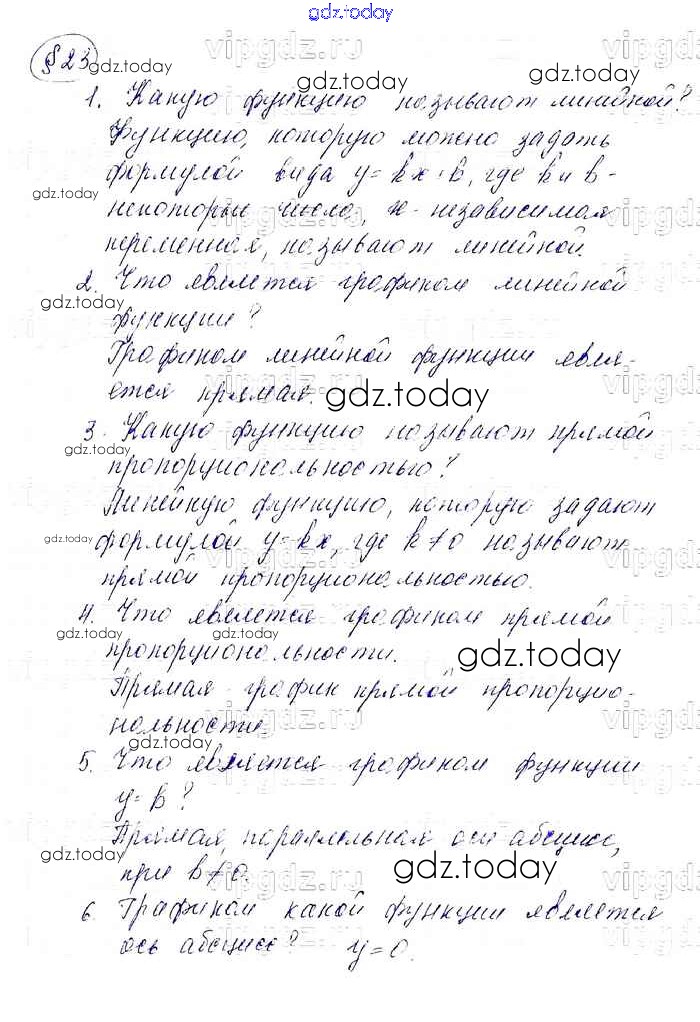 gdz.today
§23
1. Какую функцию называют линейной?
Функцию, которую можно задать
формулой вида y = kx + b, где k и b -
некоторые числа, x - независимая
переменная, называют линейной.
2. Что является графиком линейной
функции?
Графиком линейной функции явля-
ется прямая.
3. Какую функцию называют прямой
пропорциональностью?
Линейную функцию, которую задают
формулой y = kx, где k ≠ 0 называют
прямой пропорциональностью.
4. Что является графиком прямой
пропорциональности.
Прямая - график прямой пропорцио-
нальности.
5. Что является графиком функции
y = b?
Прямая, параллельная оси абсцисс,
при b ≠ 0.
6. Графиком какой функции является
ось абсцисс? y = 0.